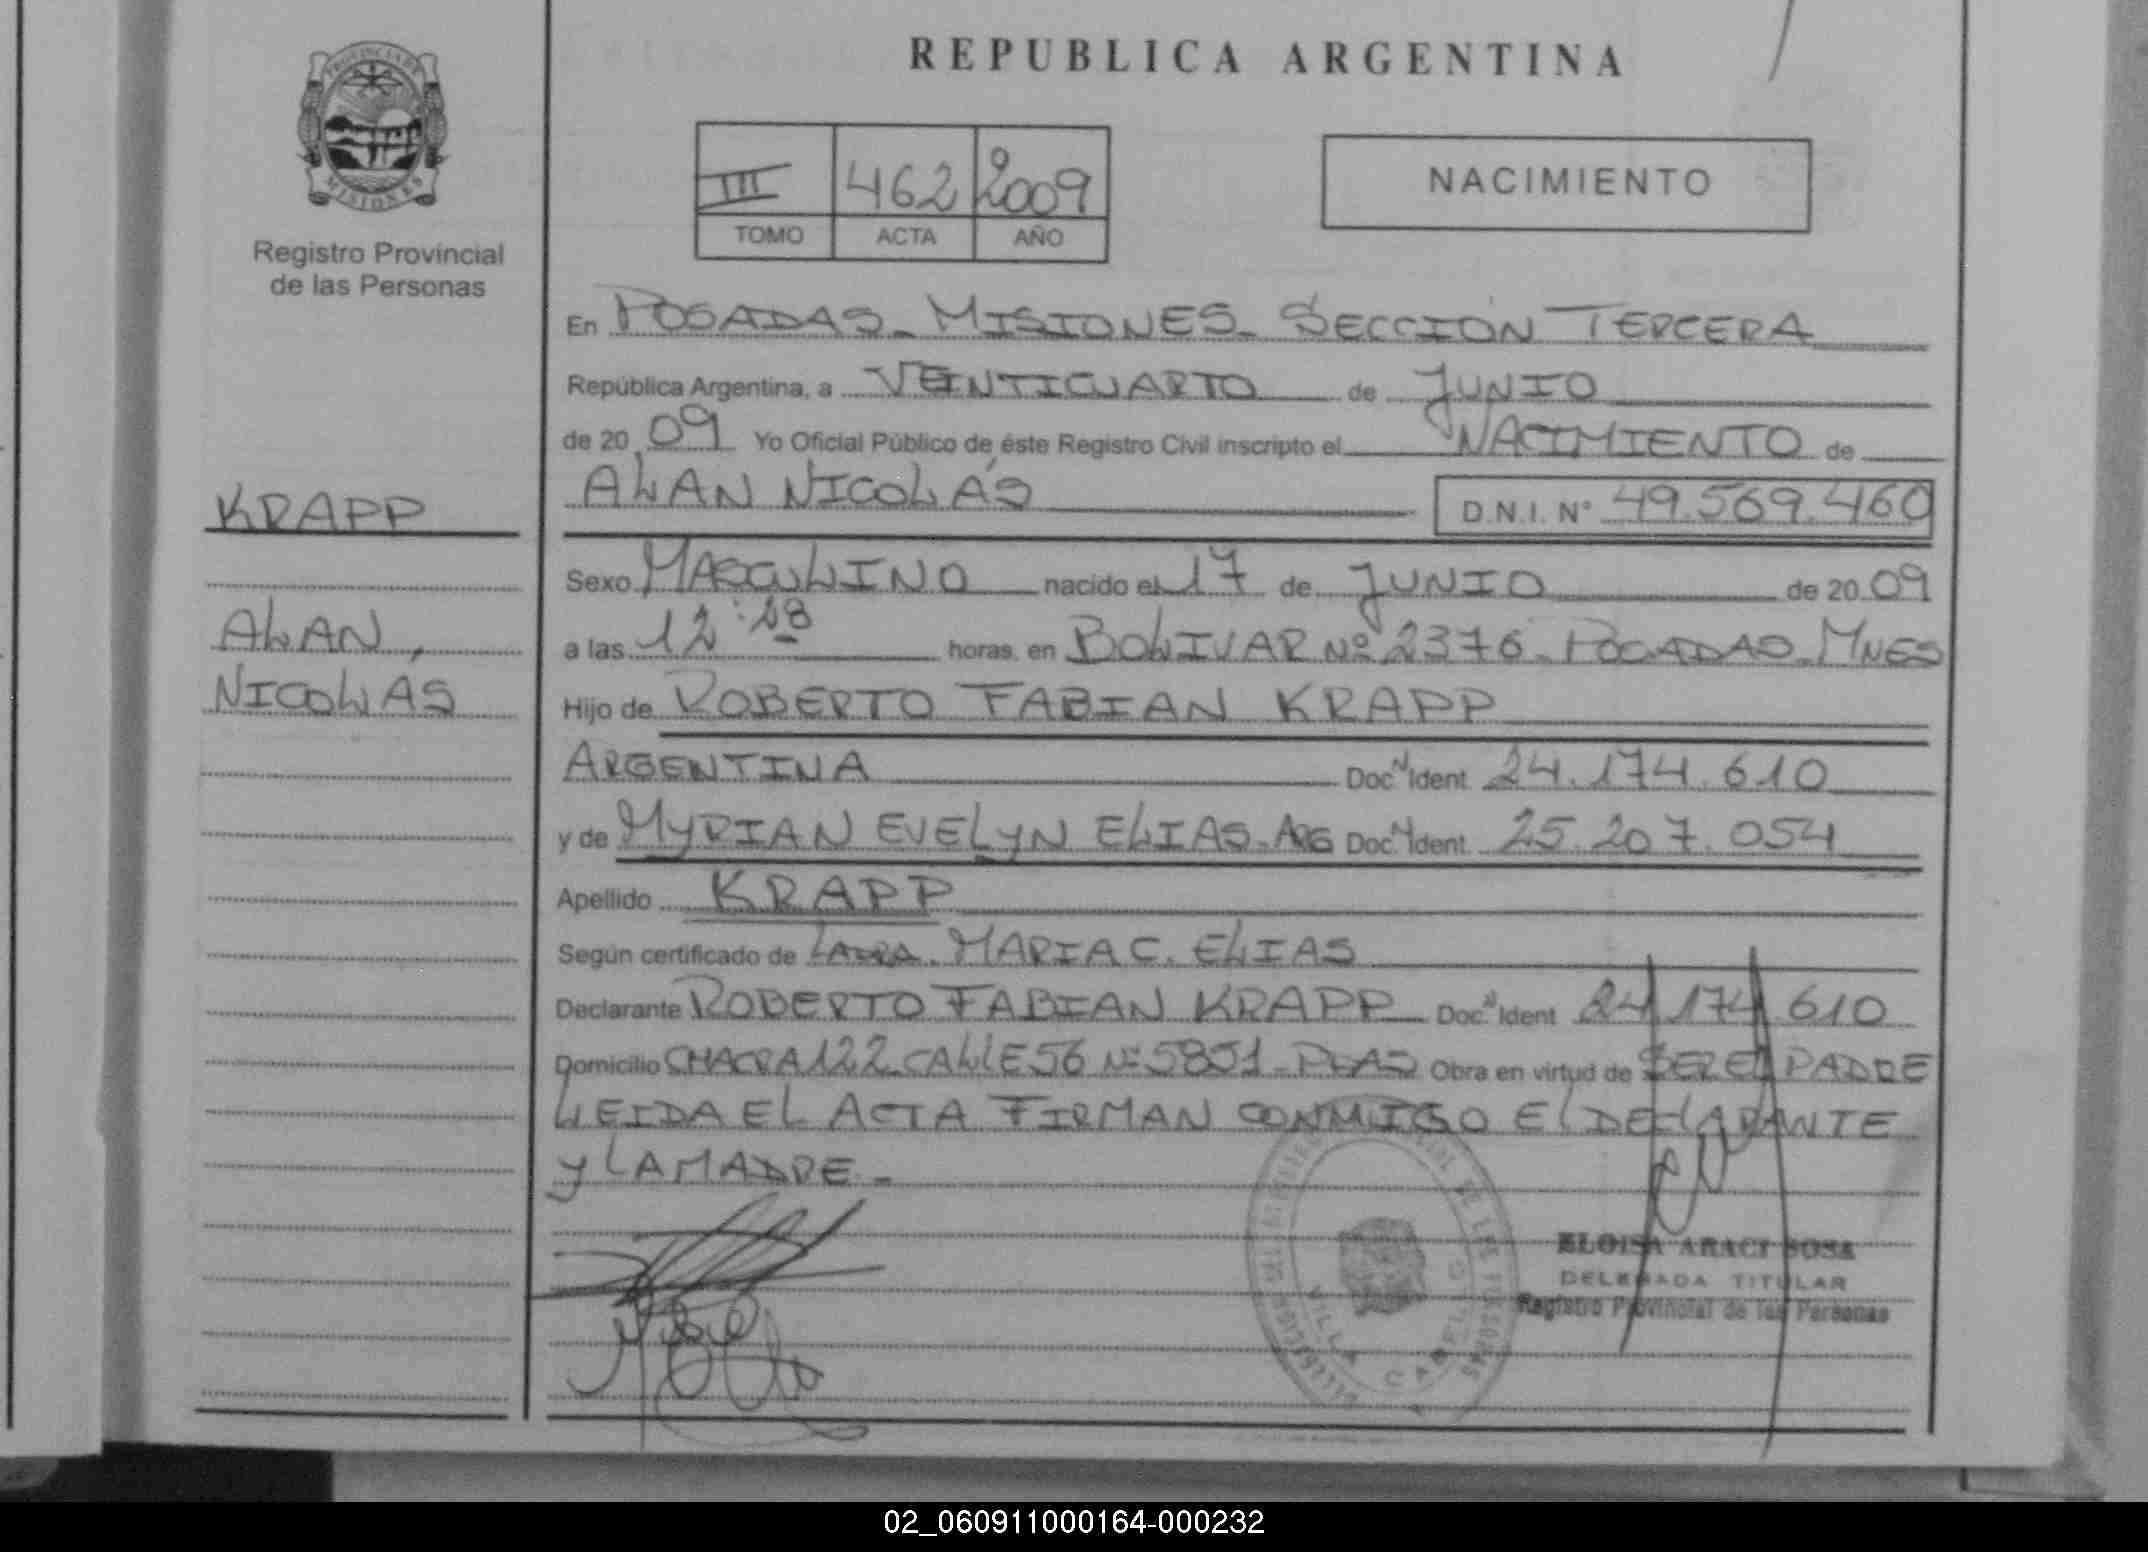 REPUBLICA ARGENTINA
PROVINCIA DE
MISIONES
Registro Provincial
de las Personas
III 462 2009
TOMO ACTA AÑO
NACIMIENTO
En POSADAS - MISIONES - SECCION TERCERA
República Argentina, a VEINTICUARTO de JUNIO
de 20 09 Yo Oficial Público de éste Registro Civil inscripto el NACIMIENTO de
ALAN NICOLÁS D.N.I. Nº 49.569.460
KRAPP
ALAN,
NICOLÁS
Sexo MASCULINO nacido el 17 de JUNIO de 20 09
a las 12:28 horas, en BOLIVAR Nº 2376 - POSADAS - MNES
Hijo de ROBERTO FABIAN KRAPP
ARGENTINA Doc N Ident 24.174.610
y de MYRIAN EVELYN ELIAS - ARG Doc N Ident 25.207.054
Apellido KRAPP
Según certificado de MARIA C. ELIAS
Declarante ROBERTO FABIAN KRAPP Doc N Ident 24 174 610
Domicilio CHACRA 122 - CALLE 56 Nº 5851 - PDAS Obra en virtud de SER EL PADRE
LEIDA EL ACTA FIRMAN CONMIGO EL DECLARANTE
Y LA MADRE -
VILLA CABELLO
ELOISA ARACI SOSA
DELEGADA TITULAR
Registro Provincial de las Personas
02_060911000164-000232